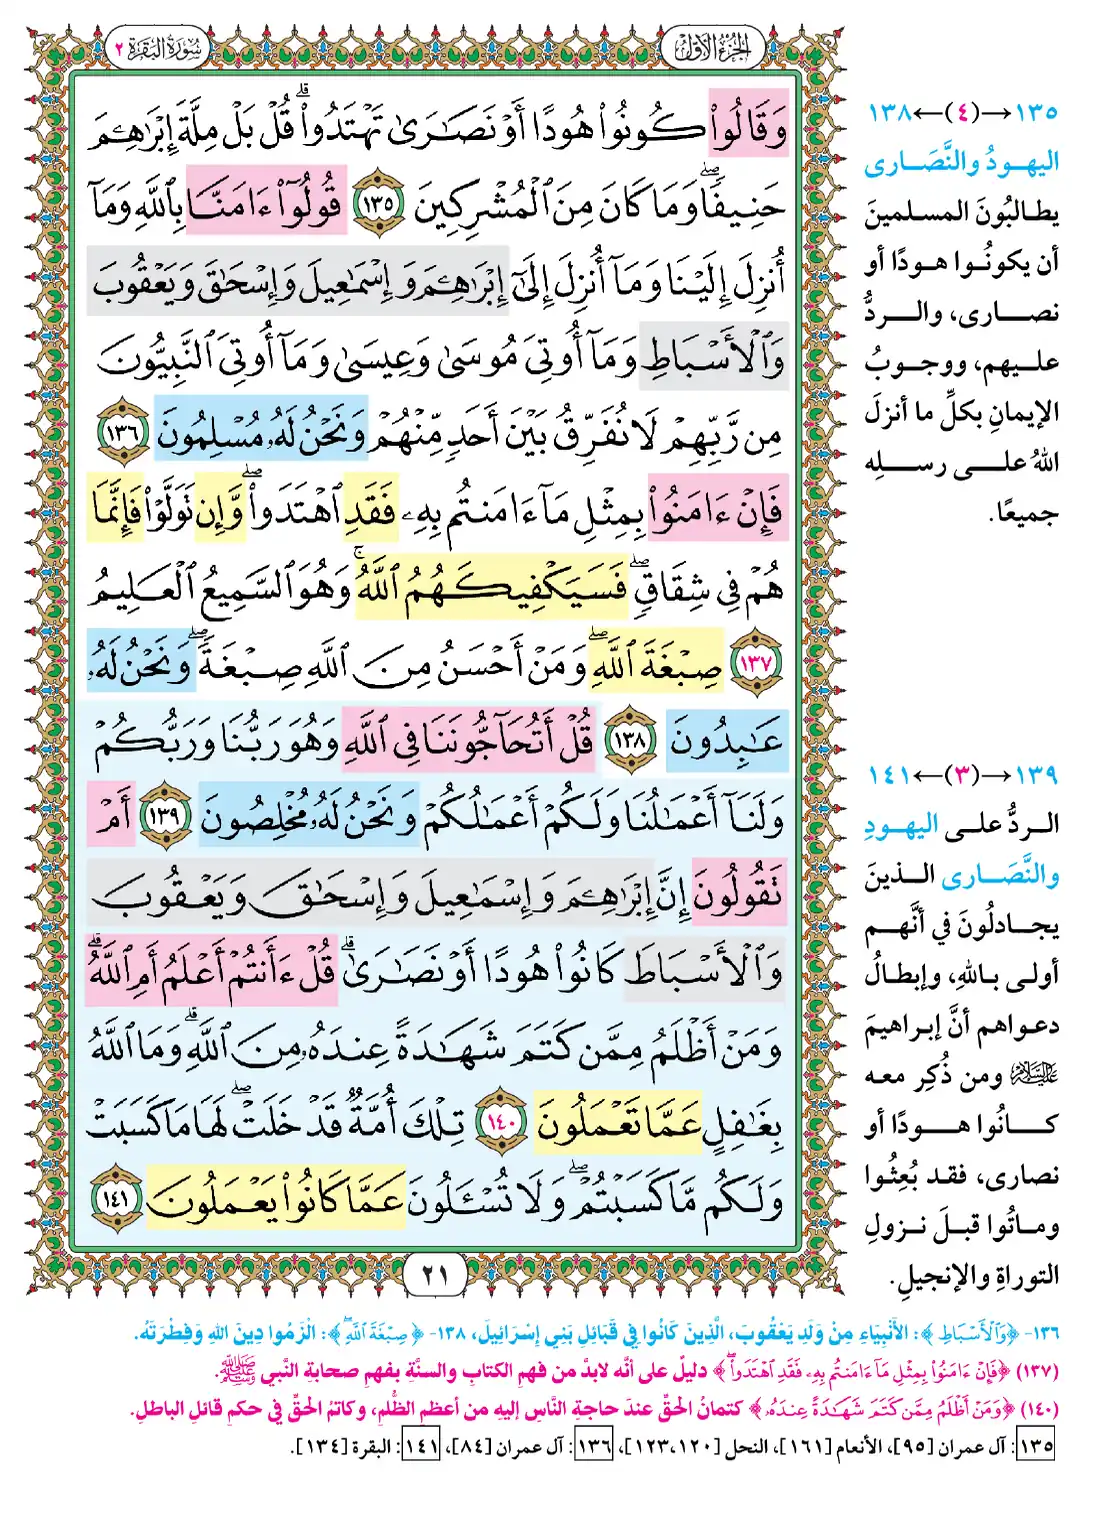 الجزء الأول
سورة البقرة ٢
وَقَالُوا۟ كُونُوا۟ هُودًا أَوْ نَصَٰرَىٰ تَهْتَدُوا۟ ۗ قُلْ بَلْ مِلَّةَ إِبْرَٰهِـۧمَ
حَنِيفًا ۖ وَمَا كَانَ مِنَ ٱلْمُشْرِكِينَ ١٣٥ قُولُوٓا۟ ءَامَنَّا بِٱللَّهِ وَمَآ
أُنزِلَ إِلَيْنَا وَمَآ أُنزِلَ إِلَىٰٓ إِبْرَٰهِـۧمَ وَإِسْمَٰعِيلَ وَإِسْحَٰقَ وَيَعْقُوبَ
وَٱلْأَسْبَاطِ وَمَآ أُوتِىَ مُوسَىٰ وَعِيسَىٰ وَمَآ أُوتِىَ ٱلنَّبِيُّونَ
مِن رَّبِّهِمْ لَا نُفَرِّقُ بَيْنَ أَحَدٍ مِّنْهُمْ وَنَحْنُ لَهُۥ مُسْلِمُونَ ١٣٦
فَإِنْ ءَامَنُوا۟ بِمِثْلِ مَآ ءَامَنتُم بِهِۦ فَقَدِ ٱهْتَدَوا۟ ۖ وَّإِن تَوَلَّوْا۟ فَإِنَّمَا
هُمْ فِى شِقَاقٍ ۖ فَسَيَكْفِيكَهُمُ ٱللَّهُ ۚ وَهُوَ ٱلسَّمِيعُ ٱلْعَلِيمُ
١٣٧ صِبْغَةَ ٱللَّهِ ۖ وَمَنْ أَحْسَنُ مِنَ ٱللَّهِ صِبْغَةً ۖ وَنَحْنُ لَهُۥ
عَٰبِدُونَ ١٣٨ قُلْ أَتُحَآجُّونَنَا فِى ٱللَّهِ وَهُوَ رَبُّنَا وَرَبُّكُمْ
وَلَنَآ أَعْمَٰلُنَا وَلَكُمْ أَعْمَٰلُكُمْ وَنَحْنُ لَهُۥ مُخْلِصُونَ ١٣٩ أَمْ
تَقُولُونَ إِنَّ إِبْرَٰهِـۧمَ وَإِسْمَٰعِيلَ وَإِسْحَٰقَ وَيَعْقُوبَ
وَٱلْأَسْبَاطَ كَانُوا۟ هُودًا أَوْ نَصَٰرَىٰ ۗ قُلْ ءَأَنتُمْ أَعْلَمُ أَمِ ٱللَّهُ ۗ
وَمَنْ أَظْلَمُ مِمَّن كَتَمَ شَهَٰدَةً عِندَهُۥ مِنَ ٱللَّهِ ۗ وَمَا ٱللَّهُ
بِغَٰفِلٍ عَمَّا تَعْمَلُونَ ١٤٠ تِلْكَ أُمَّةٌ قَدْ خَلَتْ ۖ لَهَا مَا كَسَبَتْ
وَلَكُم مَّا كَسَبْتُمْ ۖ وَلَا تُسْـَٔلُونَ عَمَّا كَانُوا۟ يَعْمَلُونَ ١٤١
٢١
١٣٥→(٤)←١٣٨
اليهودُ والنَّصَارى
يطالبُونَ المسلمينَ
أن يكونُوا هودًا أو
نصارى، والردُّ
عليهم، ووجوبُ
الإيمانِ بكلِّ ما أنزلَ
اللهُ على رسلِه
جميعًا.
١٣٩→(٣)←١٤١
الردُّ على اليهودِ
والنَّصَارى الذينَ
يجادلُونَ في أنَّهم
أولى باللهِ، وإبطالُ
دعواهم أنَّ إبراهيمَ
عليه السلام ومن ذُكِر معه
كانُوا هودًا أو
نصارى، فقد بُعِثُوا
وماتُوا قبلَ نزولِ
التوراةِ والإنجيلِ.
١٣٦- ﴿وَٱلْأَسْبَاطِ﴾: الأَنْبِيَاءِ مِنْ وَلَدِ يَعْقُوبَ، الَّذِينَ كَانُوا فِي قَبَائِلِ بَنِي إِسْرَائِيلَ، ١٣٨- ﴿صِبْغَةَ ٱللَّهِ ۖ﴾: الْزَمُوا دِينَ اللهِ وَفِطْرَتَهُ.
(١٣٧) ﴿فَإِنْ ءَامَنُوا۟ بِمِثْلِ مَآ ءَامَنتُم بِهِۦ فَقَدِ ٱهْتَدَوا۟ ۖ﴾ دليلٌ على أنَّه لابدَّ من فهمِ الكتابِ والسنَّةِ بفهمِ صحابةِ النَّبي ﷺ.
(١٤٠) ﴿وَمَنْ أَظْلَمُ مِمَّن كَتَمَ شَهَٰدَةً عِندَهُۥ﴾ كتمانُ الحقِّ عندَ حاجةِ النَّاس إليهِ من أعظمِ الظُّلمِ، وكاتمُ الحقِّ في حكمِ قائلِ الباطلِ.
١٣٥: آل عمران [٩٥]، الأنعام [١٦١]، النحل [١٢٠، ١٢٣]، ١٣٦: آل عمران [٨٤]، ١٤١: البقرة [١٣٤].